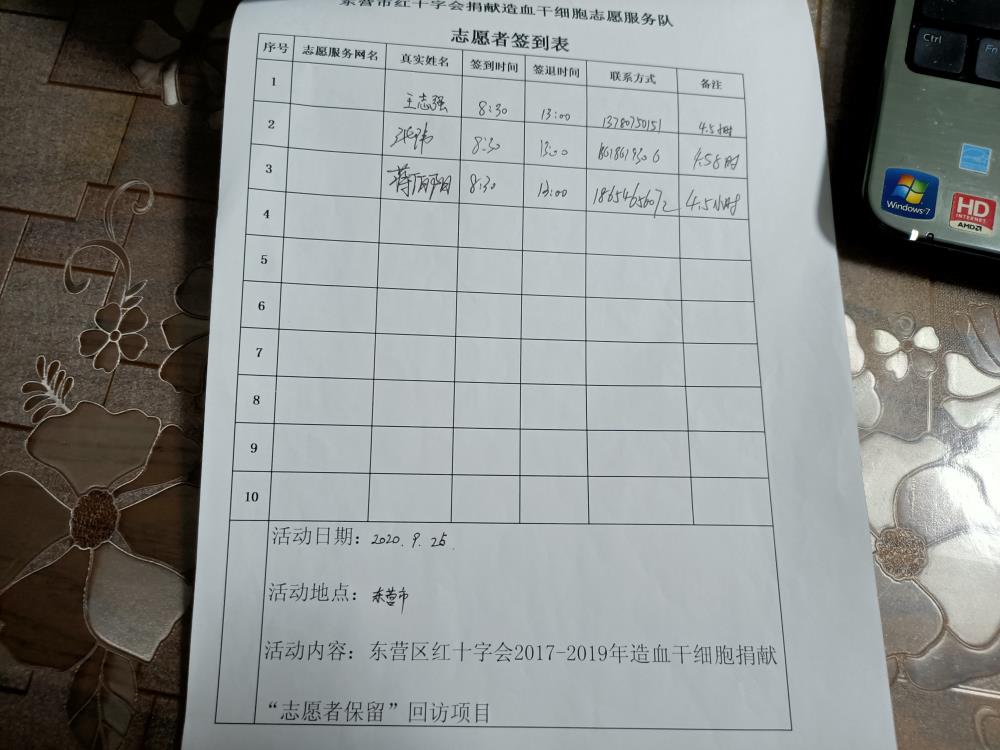 东营市红十字会捐献造血干细胞志愿服务队
志愿者签到表
序号 志愿服务网名 真实姓名 签到时间 签退时间 联系方式 备注
1 王志强 8:30 13:00 13780750151 4.5小时
2 8:30 13:00 4.5小时
3 8:30 13:00 18654656072 4.5小时
4
5
6
7
8
9
10
活动日期：2020.9.25.
活动地点：东营市
活动内容：东营区红十字会2017-2019年造血干细胞捐献
“志愿者保留”回访项目
Ctrl
Fn
Windows 7
HD
INTERNET
AMD